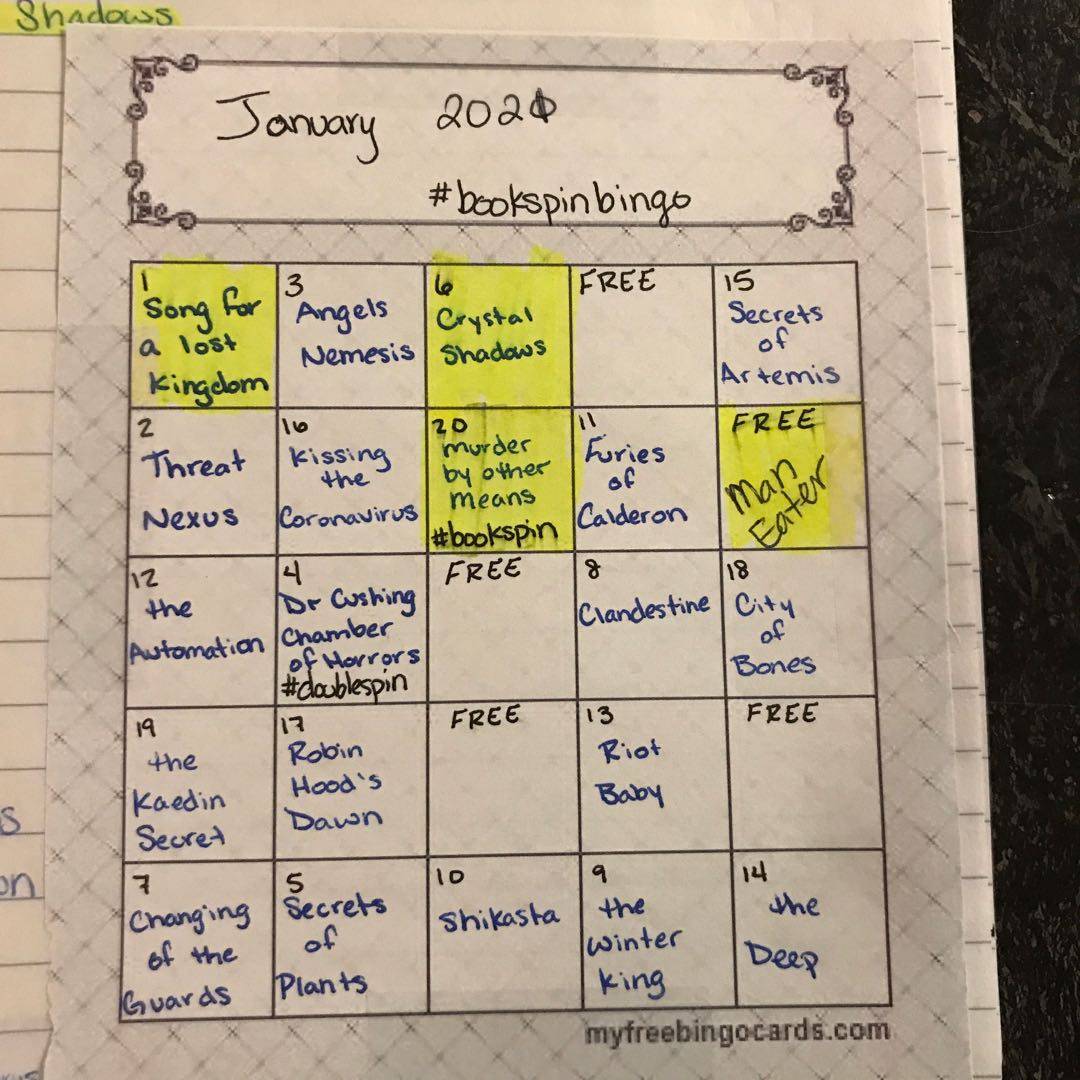 Shadows
January 2021
#bookspinbingo
1
Song for
a lost
Kingdom
3
Angels
Nemesis
6
Crystal
Shadows
FREE
15
Secrets
of
Artemis
2
Threat
Nexus
16
Kissing
the
Coronavirus
20
murder
by other
means
#bookspin
11
Furies
of
Calderon
FREE
Man
Eater
12
the
Automation
4
Dr Cushing
Chamber
of Horrors
#doublespin
FREE
8
Clandestine
18
City
of
Bones
19
the
Kaedin
Secret
17
Robin
Hood's
Dawn
FREE
13
Riot
Baby
FREE
7
Changing
of the
Guards
5
Secrets
of
Plants
10
Shikasta
9
the
winter
king
14
the
Deep
myfreebingocards.com